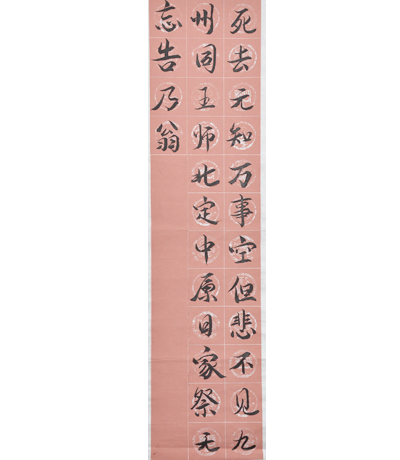 死去元知万事空但悲不见九
州同王师北定中原日家祭无
忘告乃翁